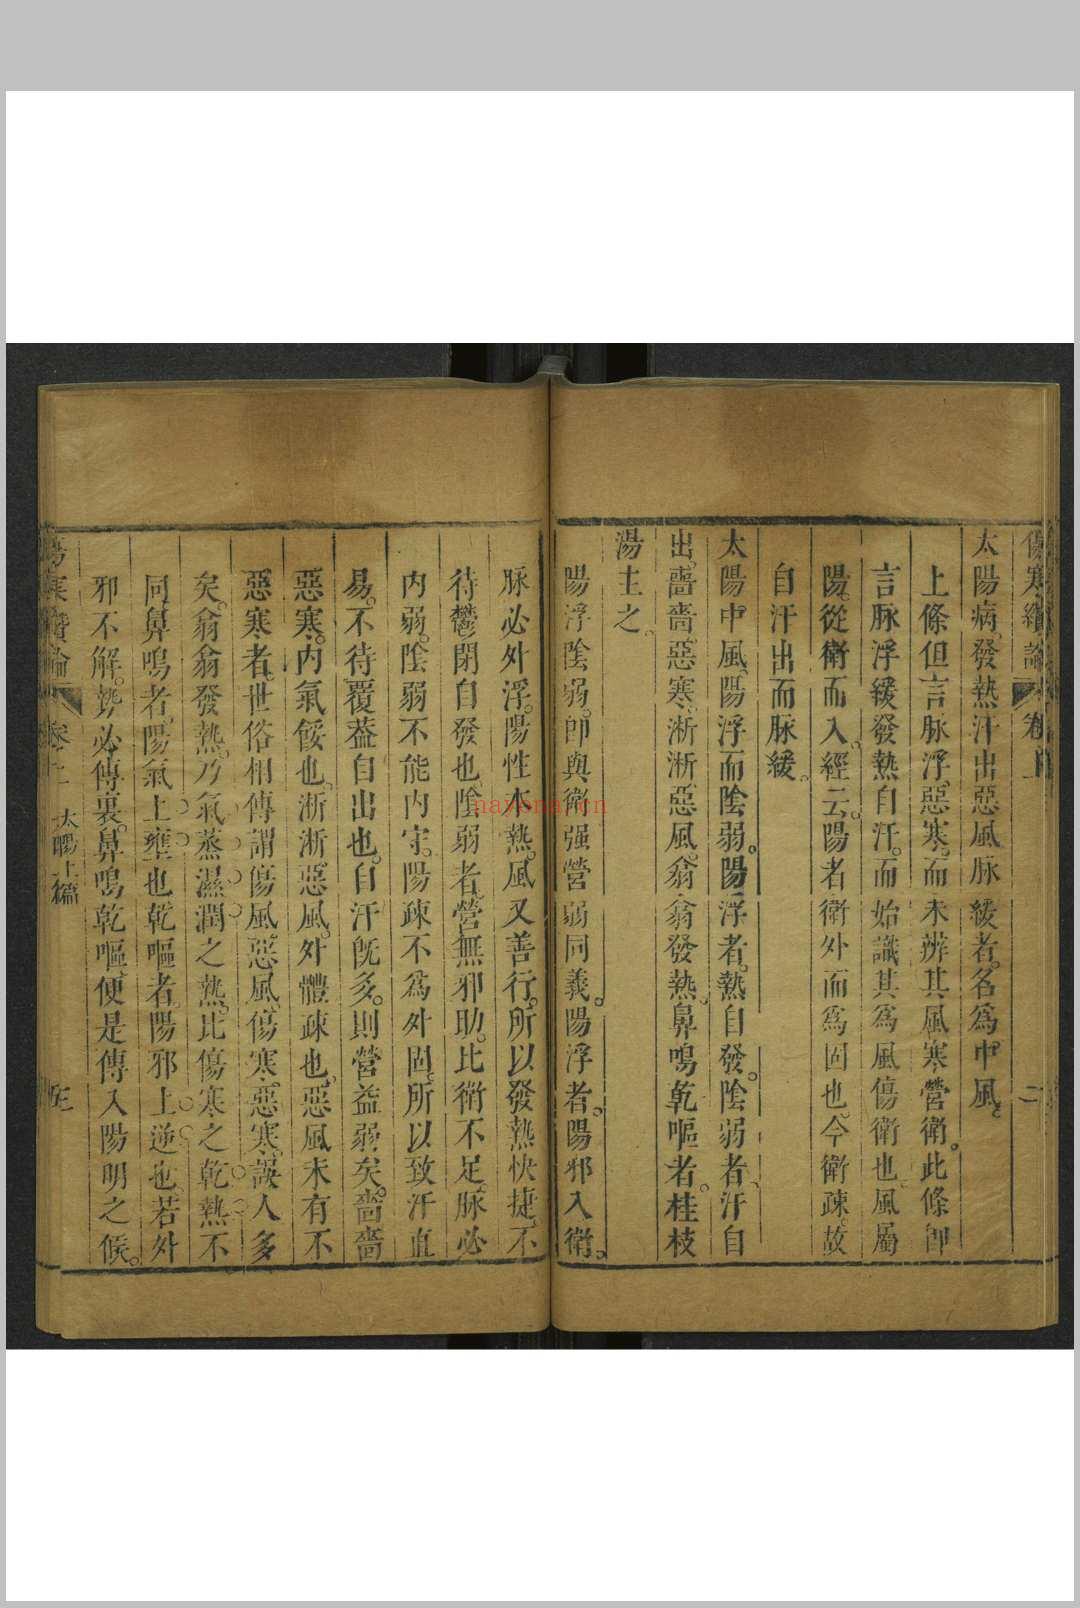 傷寒纘論 卷上 二
太陽病。發熱汗出惡風脉緩者。名爲中風。
上條但言脉浮惡寒。而未辨其風寒營衛。此條卽
言脉浮緩發熱自汗。而始識其爲風傷衛也。風屬
陽。從衛而入。經云。陽者衛外而爲固也。今衛疎。故
自汗出而脉緩。
太陽中風。陽浮而陰弱。陽浮者。熱自發。陰弱者。汗自
出。嗇嗇惡寒。淅淅惡風。翕翕發熱。鼻鳴乾嘔者。桂枝
湯主之。
陽浮陰弱。卽與衛强營弱同義。陽浮者。陽邪入衛。
脉必外浮。陽性本熱。風又善行。所以發熱快捷。不
待鬱閉自發也。陰弱者。營無邪助。比衛不足。脉必
内弱。陰弱不能内守。陽疎不爲外固。所以致汗直
易。不待覆葢自出也。自汗旣多。則營益弱矣。嗇嗇
惡寒。内氣餒也。淅淅惡風。外體疎也。惡風未有不
惡寒者。世俗相傳謂傷風惡風。傷寒惡寒。誤人多
矣。翕翕發熱。乃氣蒸濕潤之熱。比傷寒之乾熱不
同。鼻鳴者。陽氣上壅也。乾嘔者。陽邪上逆也。若外
邪不解。勢必傳裏。鼻鳴乾嘔。便是傳入陽明之候。
傷寒纘論 卷上 太陽上篇